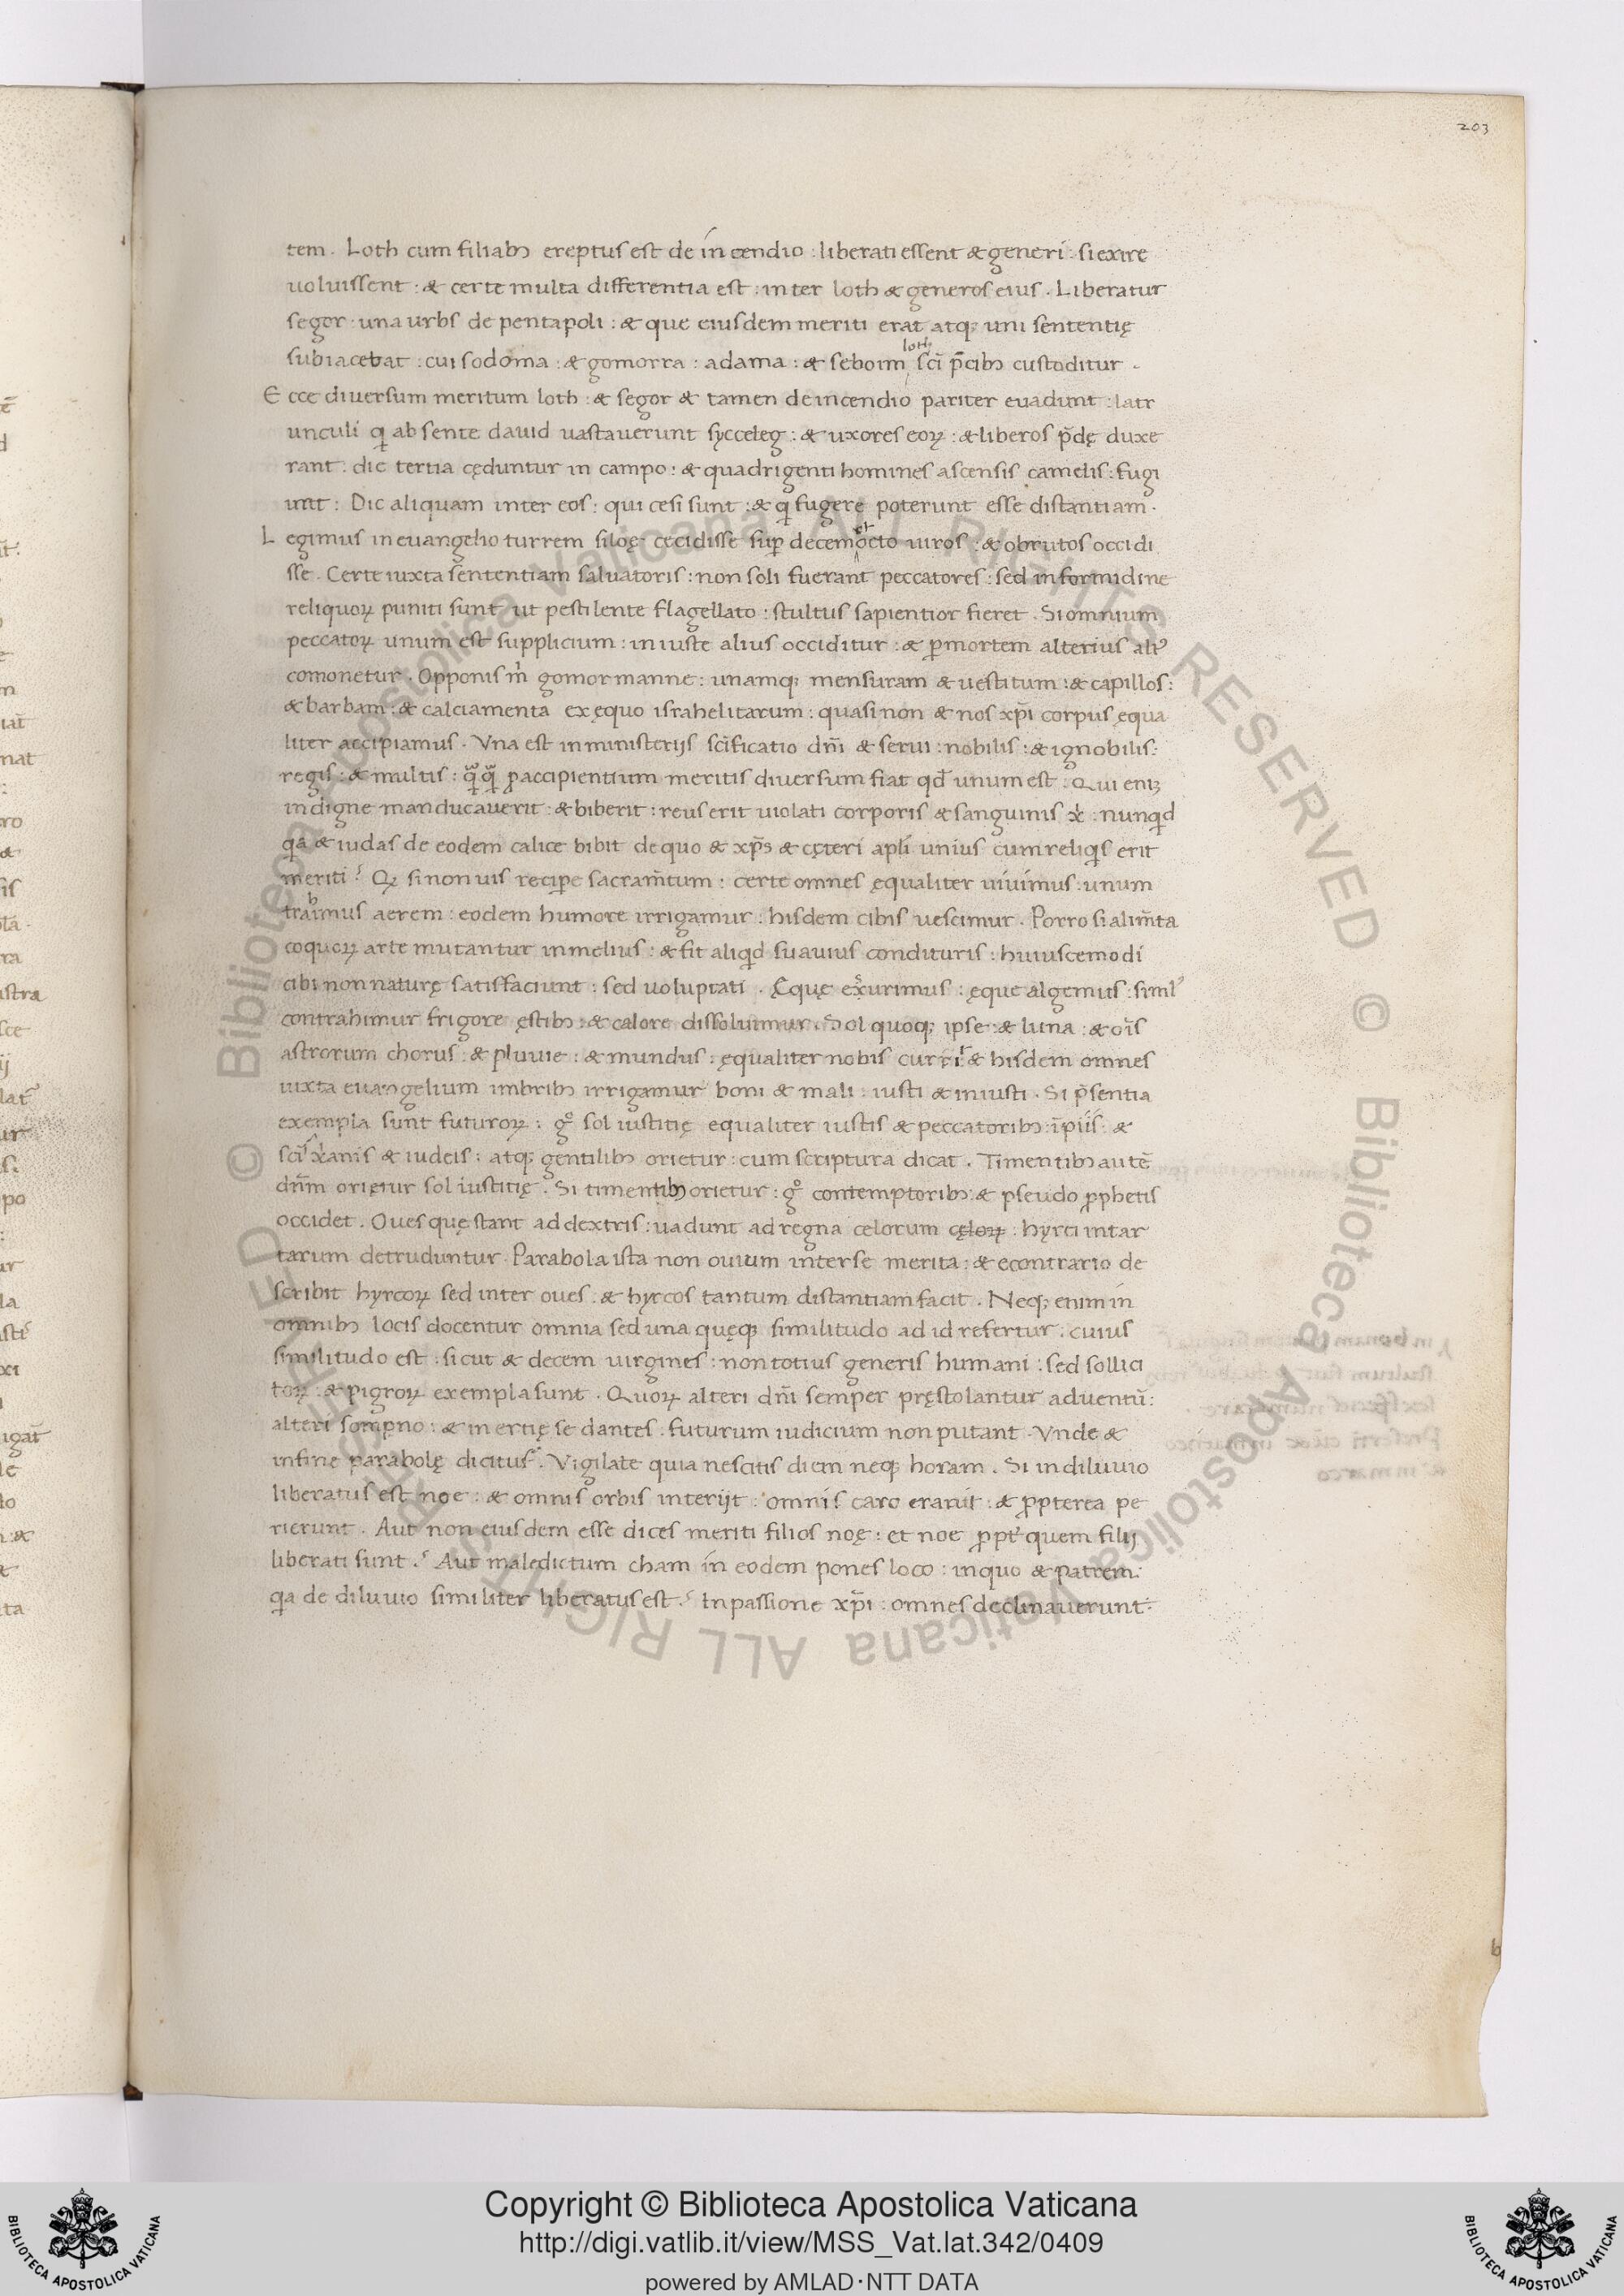 203
tem. Loth cum filiabꝫ ereptus est de in cendio : liberati essent & generi : si exire
uoluissent : & certe multa differentia est : inter loth & generos eius. Liberatur
segor : una urbs de pentapoli : & que eiusdem meriti erat atqꝫ uni sententię
subiacebat : cui sodoma : & gomorra : adama : & seboim loth sc̄i p̄cibꝫ custoditur .
E cce diuersum meritum loth : & segor & tamen de incendio pariter euadunt : latr
unculi q̨ absente dauid uastauerunt sycceleg : & uxores eoꝝ : & liberos p̄dę duxe
rant : die tertia cęduntur in campo : & quadrigenti homines ascensis camelis : fugi
unt : Dic aliquam inter eos : qui cesi sunt : & q̨ fugere poterunt esse distantiam .
L egimus in euangelio turrem siloę cecidisse suꝑ decem et octo uiros : & obrutos occidi
sse . Certe iuxta sententiam saluatoris : non soli fuerant peccatores : sed in formidine
reliquoꝝ puniti sunt ut pestilente flagellato : stultus sapientior fieret . Si omnium
peccatoꝝ unum est supplicium : iniuste alius occiditur : & ꝑ mortem alterius ali᾽
comonetur . Opponis m̍ gomor manne : unamqꝫ mensuram & uestitum : & capillos :
& barbam : & calciamenta ex ęquo israhelitarum : quasi non & nos xp̄i corpus ęqua
liter accipiamus . Vna est in ministerijs sc̄ificatio dn̄i & serui : nobilis : & ignobilis :
regis : & multis : qͣqͣ ꝑ accipientium meritis diuersum fiat qd̄ unum est . Qui eniꝫ
indigne manducauerit : & biberit : reus erit uiolati corporis & sanguinis x̍ : nunqd
qa & iudas de eodem calice bibit de quo & xp̄s & cęteri apl̄i unius cum reliqis erit
meriti ? Qꝫ si non uis reciꝑe sacram̄tum : certe omnes ęqualiter uiuimus : unum
trahimus aerem : eodem humore irrigamur : hisdem cibis uescimur . Porro si alim̄ta
coquoꝝ arte mutantur in melius : & fit aliqd suauius condituris : huiuscemodi
cibi non naturę satisfaciunt : sed uoluptati . Ęque exurimus : ęque algemus : simil᾽
contrahimur frigore ęstibꝫ : & calore dissoluimur . Sol quoqꝫ ipse : & luna : & oi̅s
astrorum chorus : & pluuie : & mundus : ęqualiter nobis currit & hisdem omnes
iuxta euangelium imbribꝫ irrigamur boni & mali : iusti & iniusti . Si p̄sentia
exempla sunt futuroꝝ : gͦ sol iustitię equaliter iustis & peccatoribꝫ : īpiis : &
sc̄is x̍anis & iudeis : atqꝫ gentilibꝫ orietur : cum scriptura dicat . Timentibꝫ autē
dn̄m orietur sol iustitię . Si timentibꝫ orietur : gͦ contemptoribꝫ : & pseudo ꝓphetis
occidet . Oues quę stant ad dextris : uadunt ad regna celorum cęloꝝ : hyrci in tar
tarum detruduntur . Parabola ista non ouium inter se merita : & econtrario de
scribit hyrcoꝝ sed inter oues : & hyrcos tantum distantiam facit . Neqꝫ enim in
omnibꝫ locis docentur omnia sed una quęqꝫ similitudo ad id refertur : cuius
similitudo est : sicut & decem uirgines : non totius generis humani : sed sollici
toꝝ : & pigroꝝ exempla sunt . Quoꝝ alteri dn̄i semper pręstolantur aduentū :
alteri sompno : & inertię se dantes : futurum iudicium non putant . Vnde &
in fine parabolę dicitur . Vigilate quia nescitis diem neqꝫ horam . Si in diluuio
liberatus est noe : & omnis orbis interijt : omnis caro eraruit : & ꝓpterea pe
rierunt . Aut non eiusdem esse dices meriti filios noę : et noe ꝓpt᾽ quem filij
liberati sunt ? Aut maledictum cham in eodem pones loco : in quo & patrem :
qa de diluuio similiter liberatus est ? In passione xp̄i : omnes declinauerunt :
Copyright © Biblioteca Apostolica Vaticana
http://digi.vatlib.it/view/MSS_Vat.lat.342/0409
powered by AMLAD·NTT DATA
BIBLIOTECA APOSTOLICA VATICANA
BIBLIOTECA APOSTOLICA VATICANA
© Biblioteca Apostolica Vaticana ALL RIGHTS RESERVED © Biblioteca Apostolica Vaticana ALL RIGHTS RESERVED